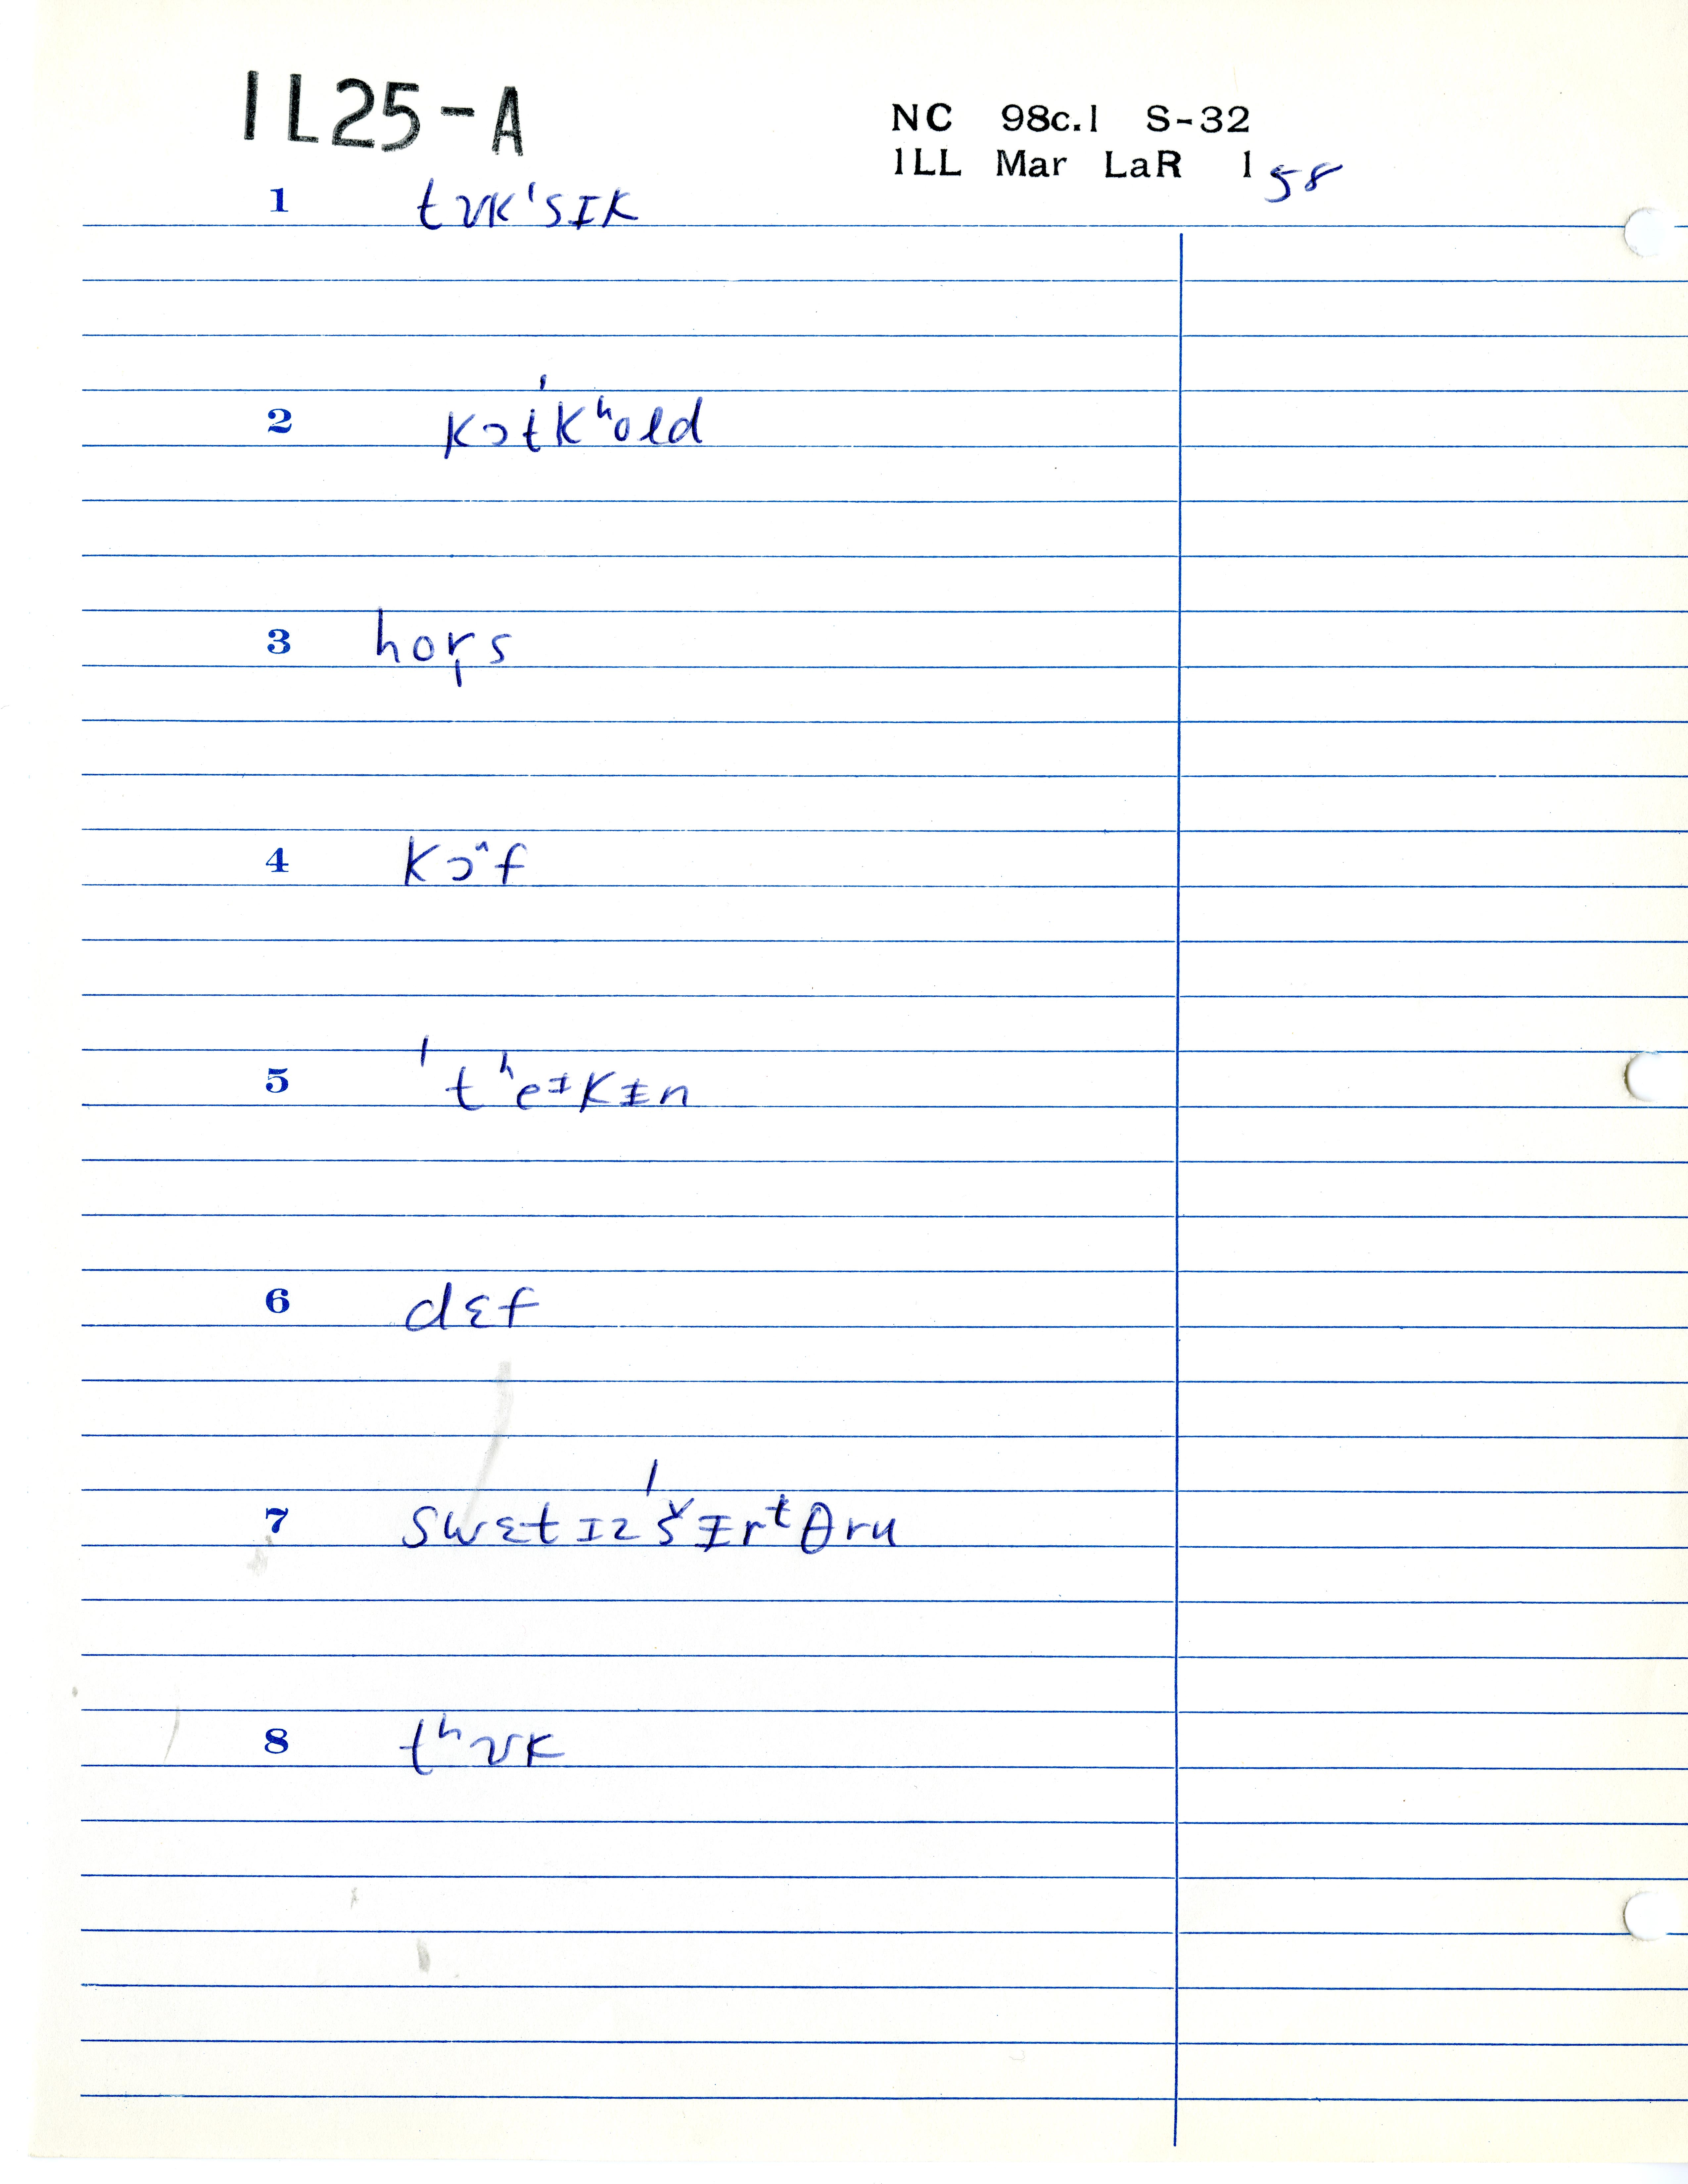 1L25-A
NC 98c.1 S-32
1LL Mar LaR 1 58
1 tʊk'sɪk
2 kɔt'kʰold
3 hor̩s
4 kɔ^f
5 'tʰeᵻkᵻn
6 dɛf
7 swɛtɪz'šᵻrᵗθru
8 tʰʊk